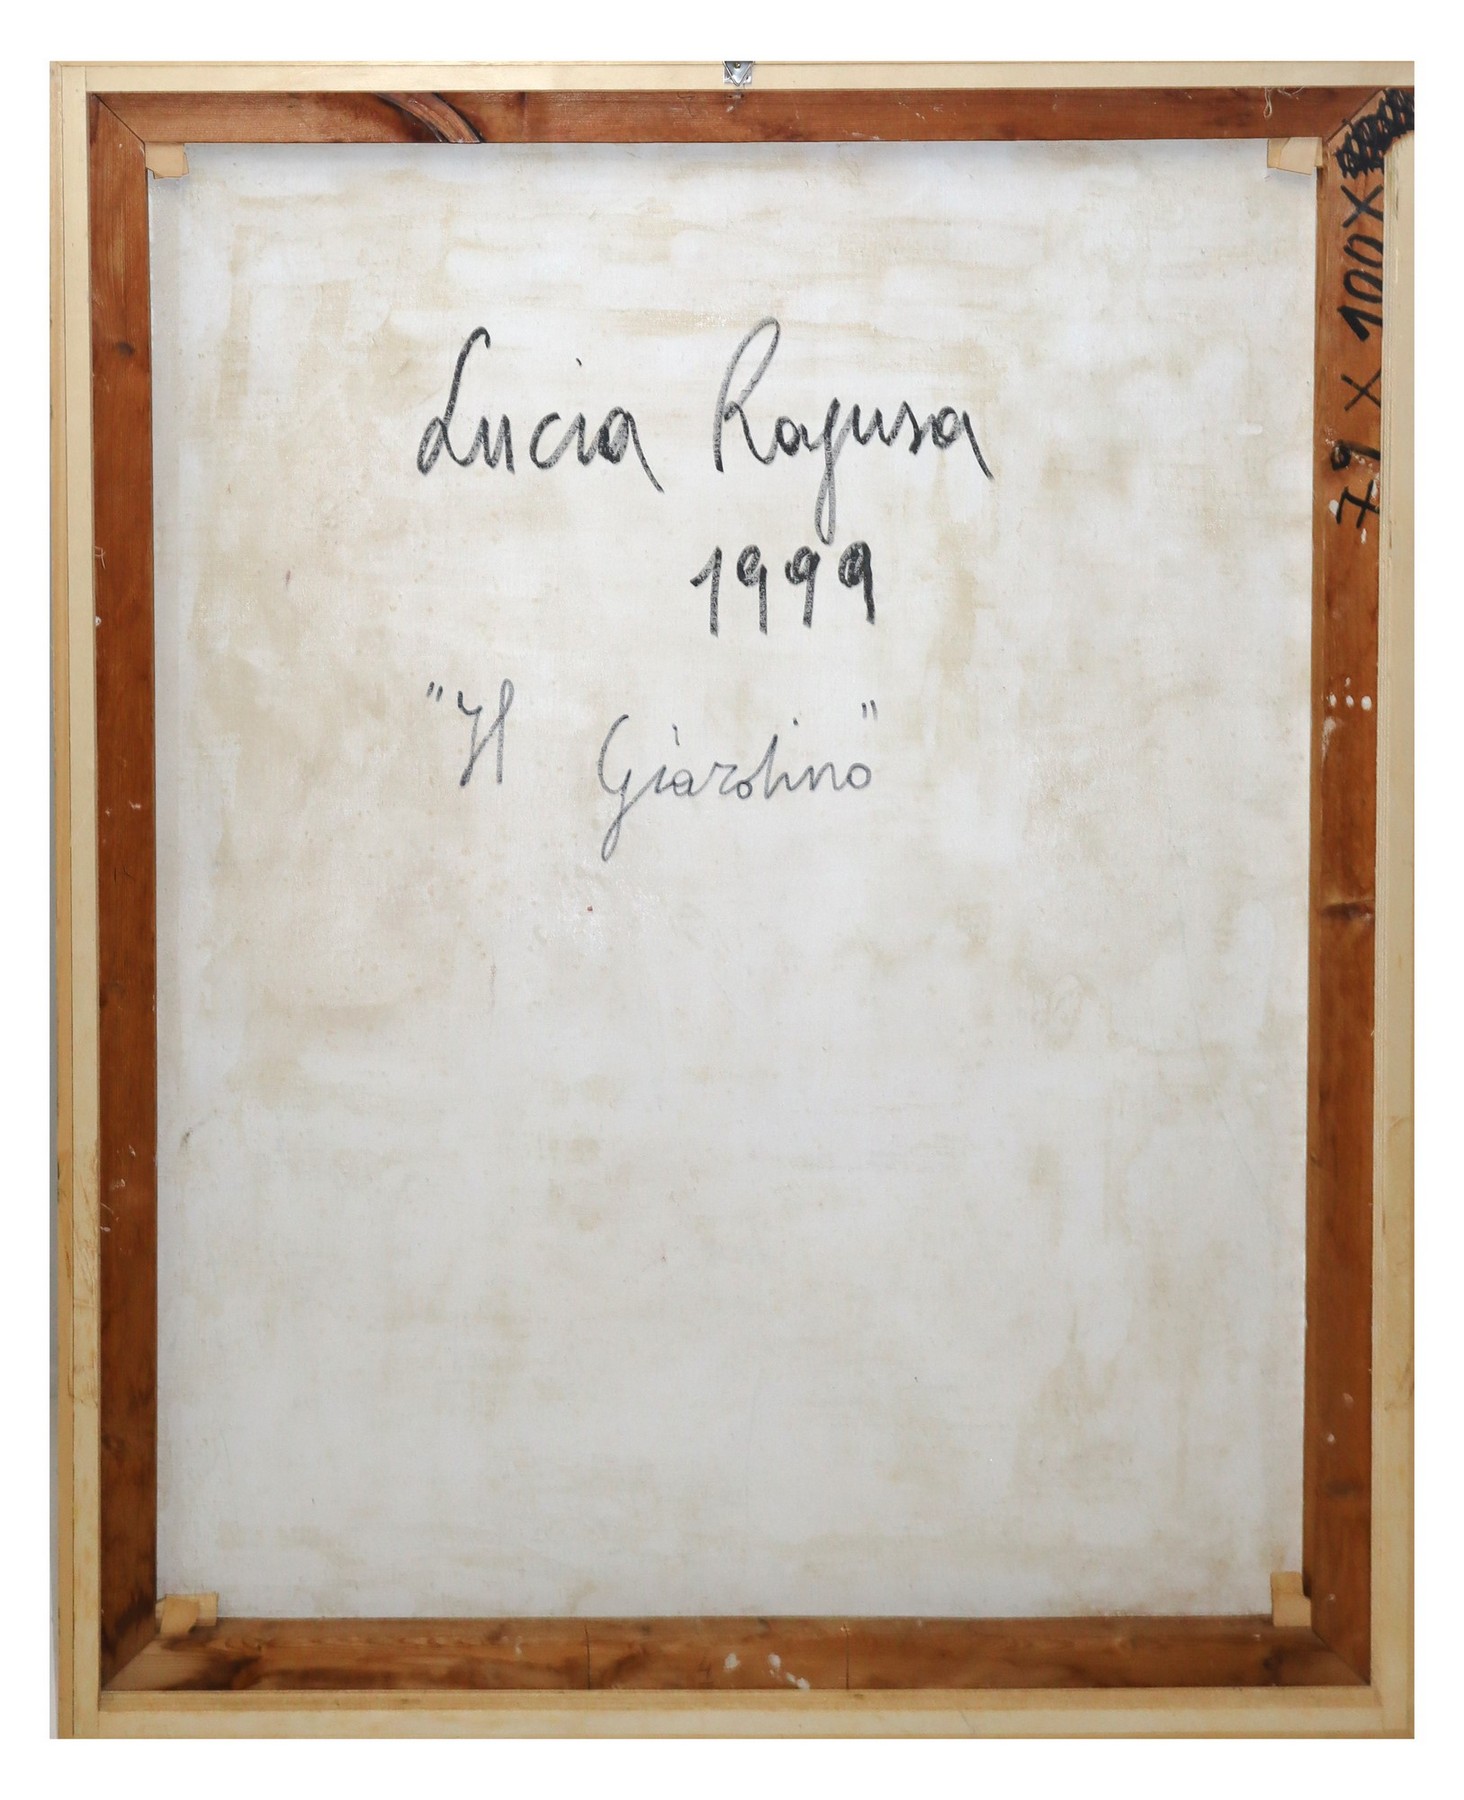 Lucia Ragusa
1999
"Il Giardino"
79 X 100 X